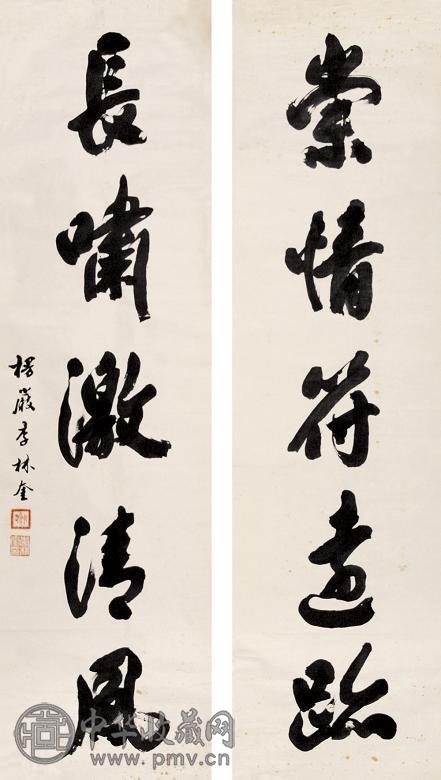 崇情符遠跡
長嘯激清風
楞嚴李林奎
中华收藏网
www.pmv.cn